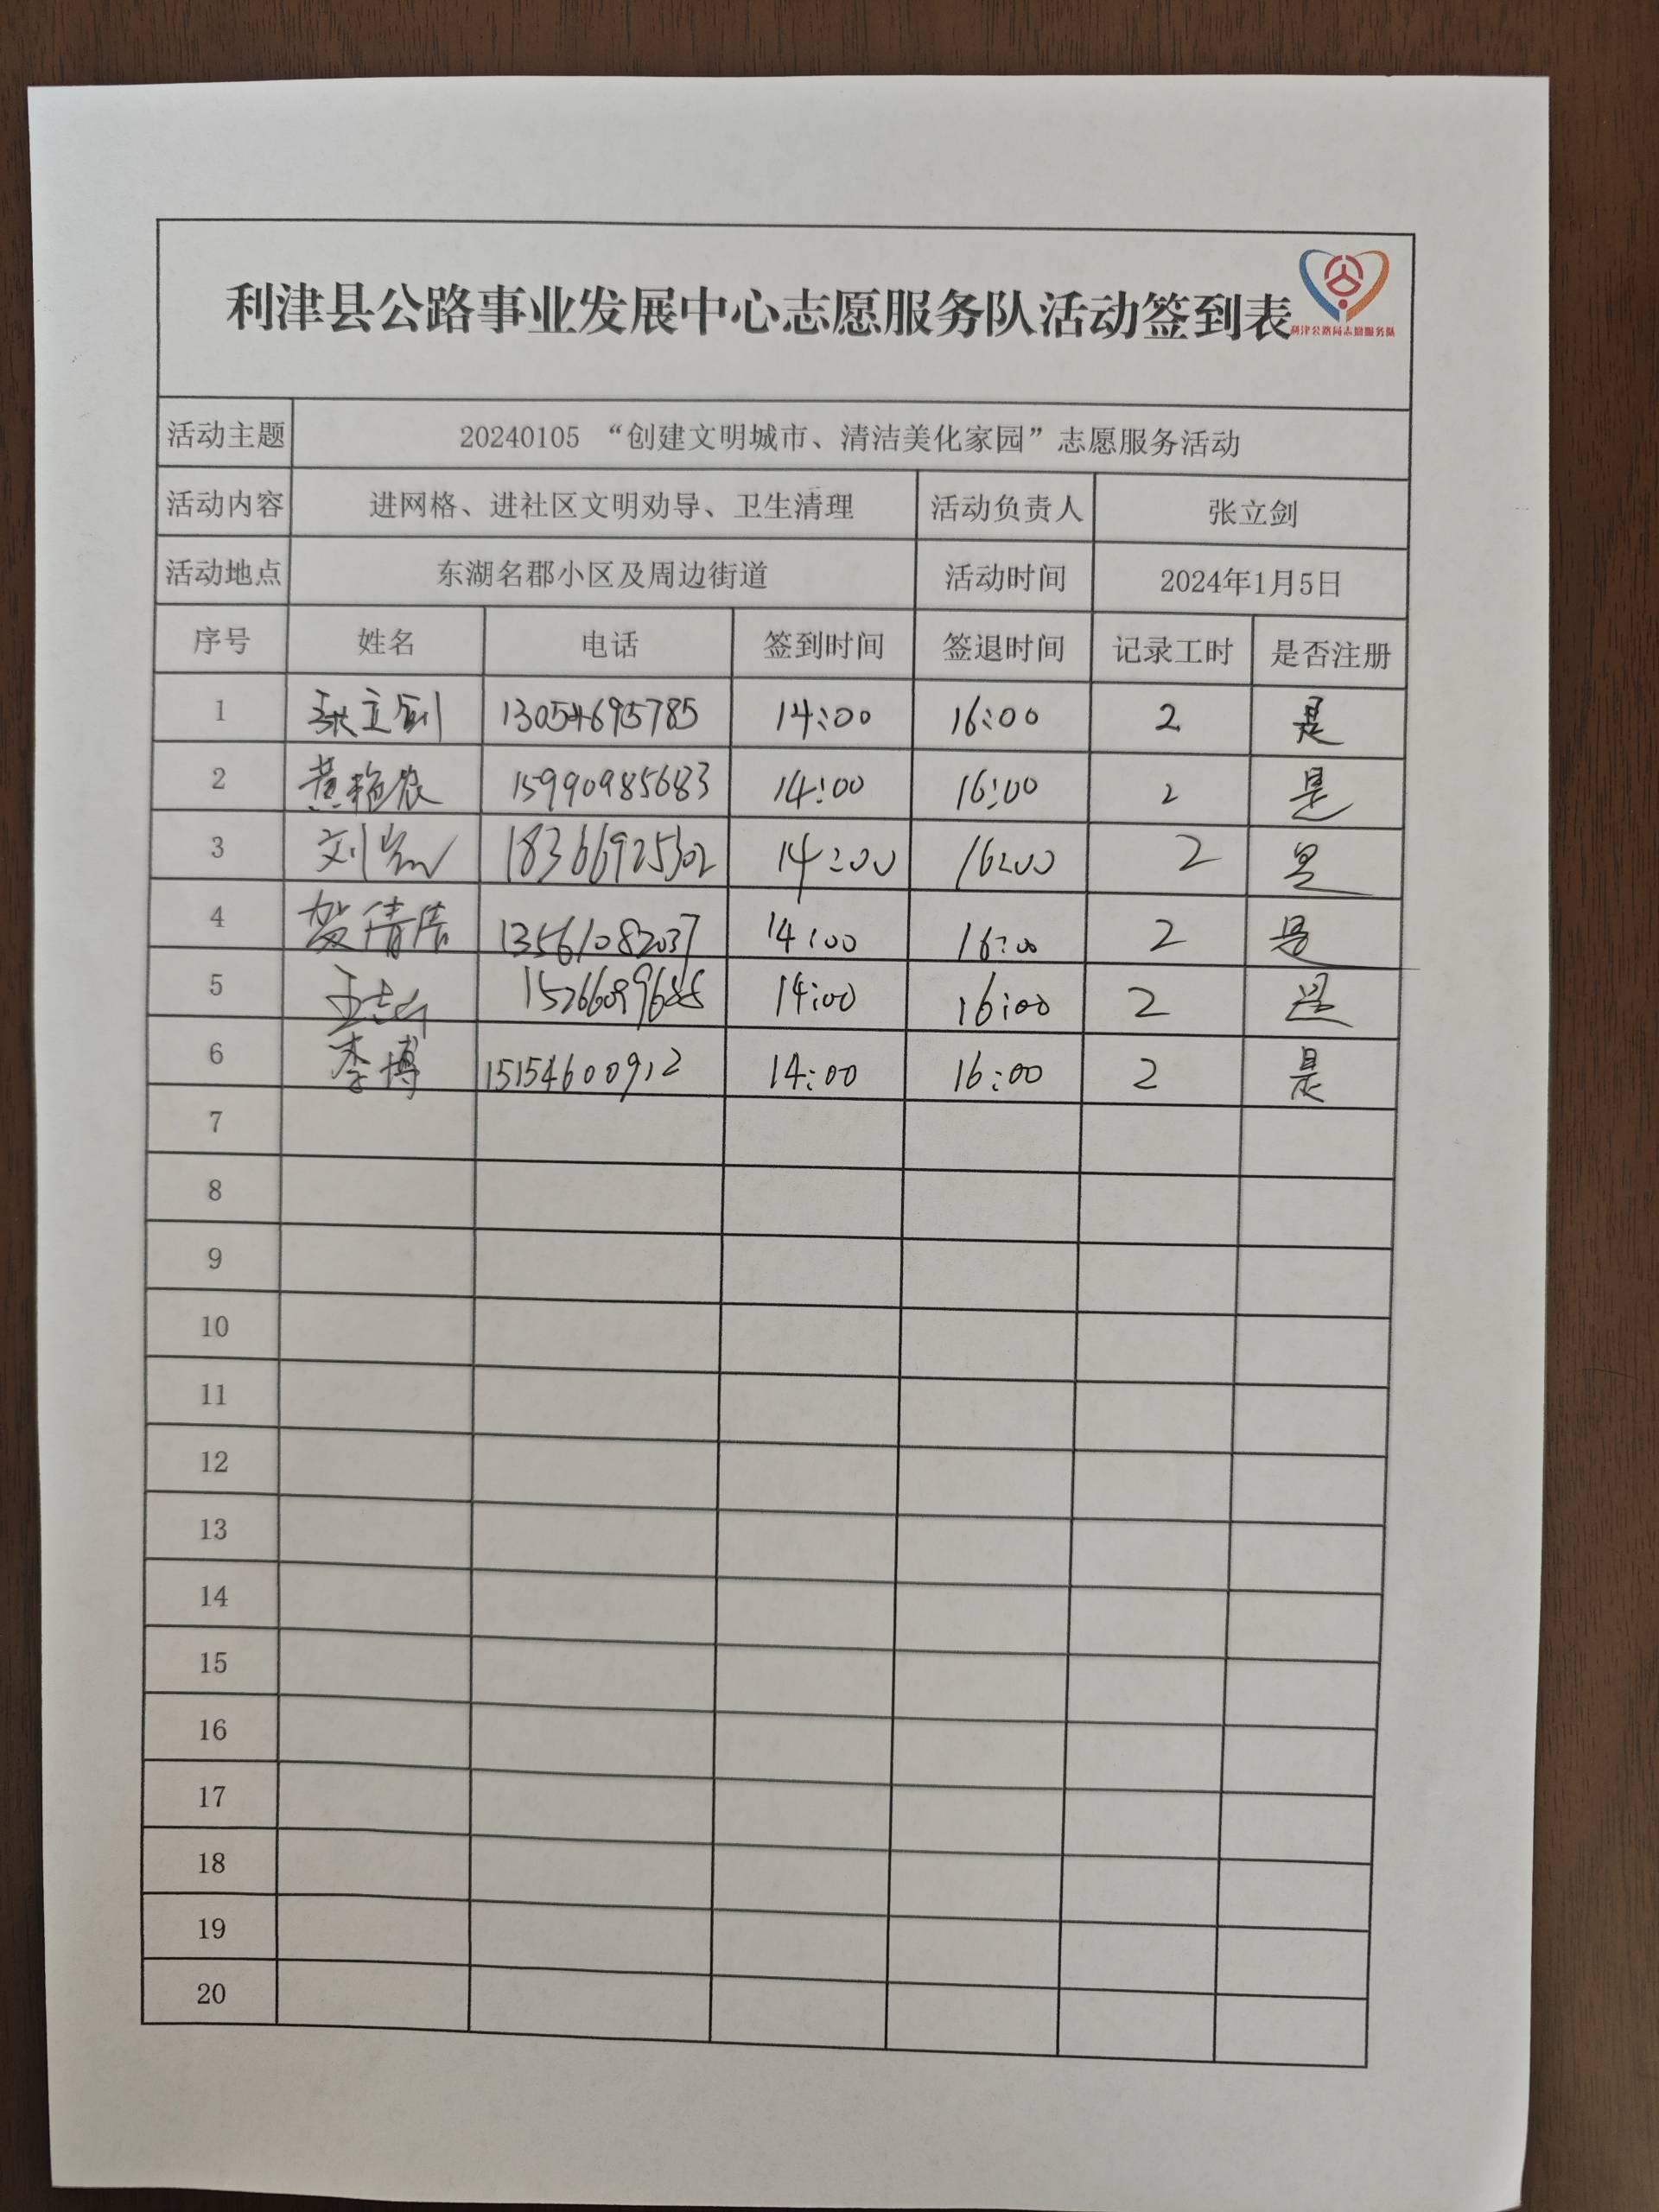 利津县公路事业发展中心志愿服务队活动签到表
利津公路局志愿服务队
活动主题 20240105 “创建文明城市、清洁美化家园”志愿服务活动
活动内容 进网格、进社区文明劝导、卫生清理 活动负责人 张立剑
活动地点 东湖名郡小区及周边街道 活动时间 2024年1月5日
序号 姓名 电话 签到时间 签退时间 记录工时 是否注册
1 张立剑 13054695785 14:00 16:00 2 是
2 黄艳农 15990985683 14:00 16:00 2 是
3 刘 18366925302 14:00 16:00 2 是
4 贺倩倩 13561082037 14:00 16:00 2 是
5 王志 15266099688 14:00 16:00 2 是
6 李博 15154600912 14:00 16:00 2 是
7
8
9
10
11
12
13
14
15
16
17
18
19
20